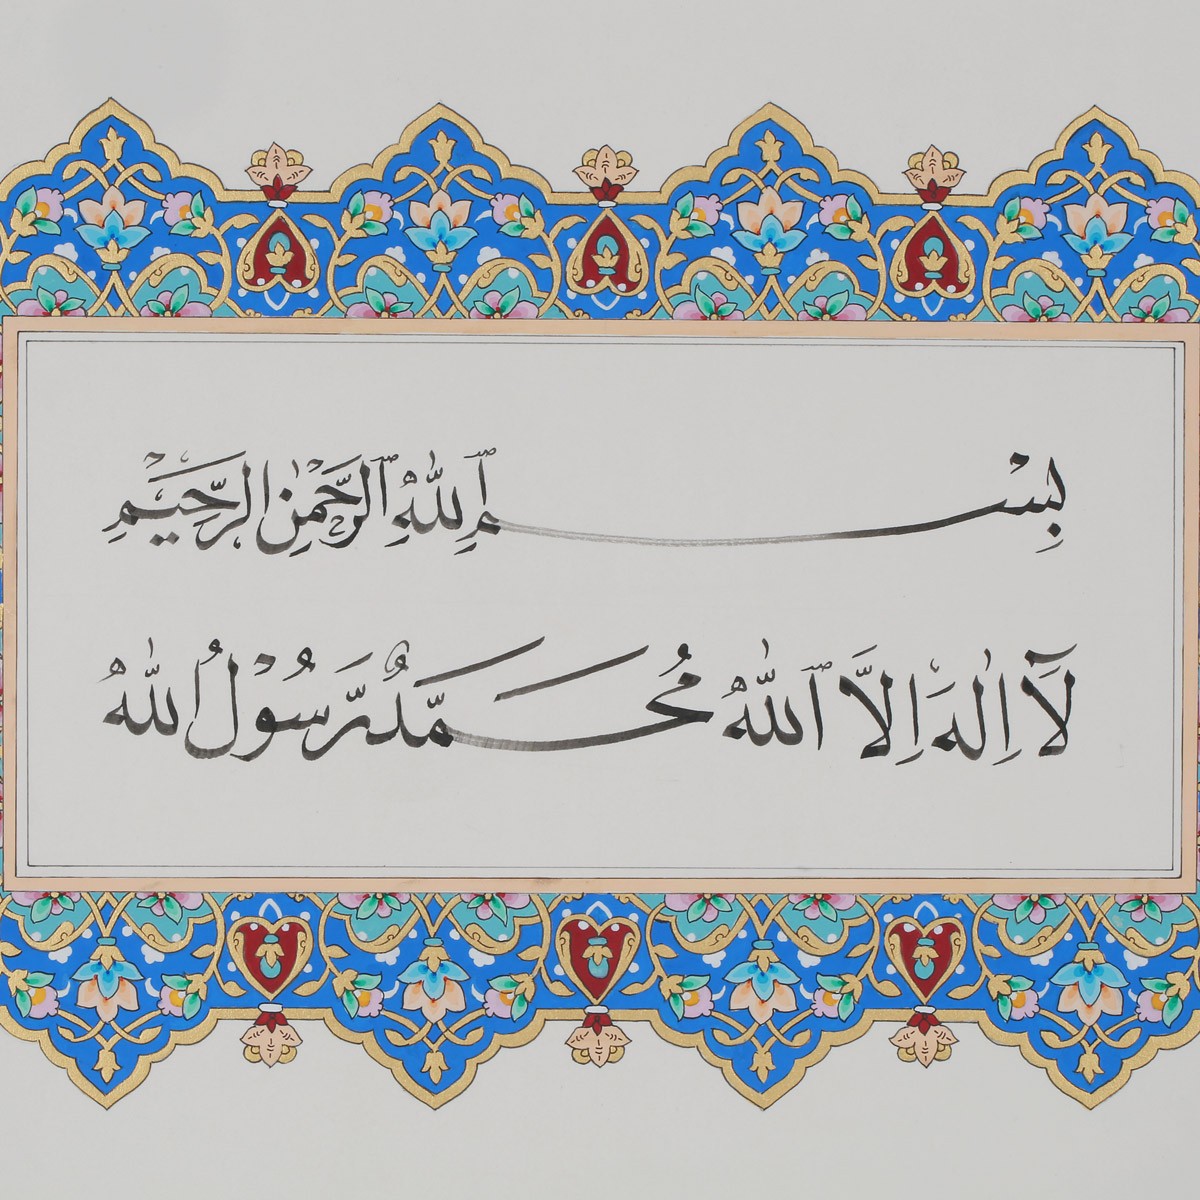 بِسْمِ ٱللّٰهِ ٱلرَّحْمٰنِ الرَّحِيْمِ
لَآ اِلٰهَ اِلَّا ٱللّٰهُ مُحَمَّدٌ رَّسُوْلُ اللّٰهُ